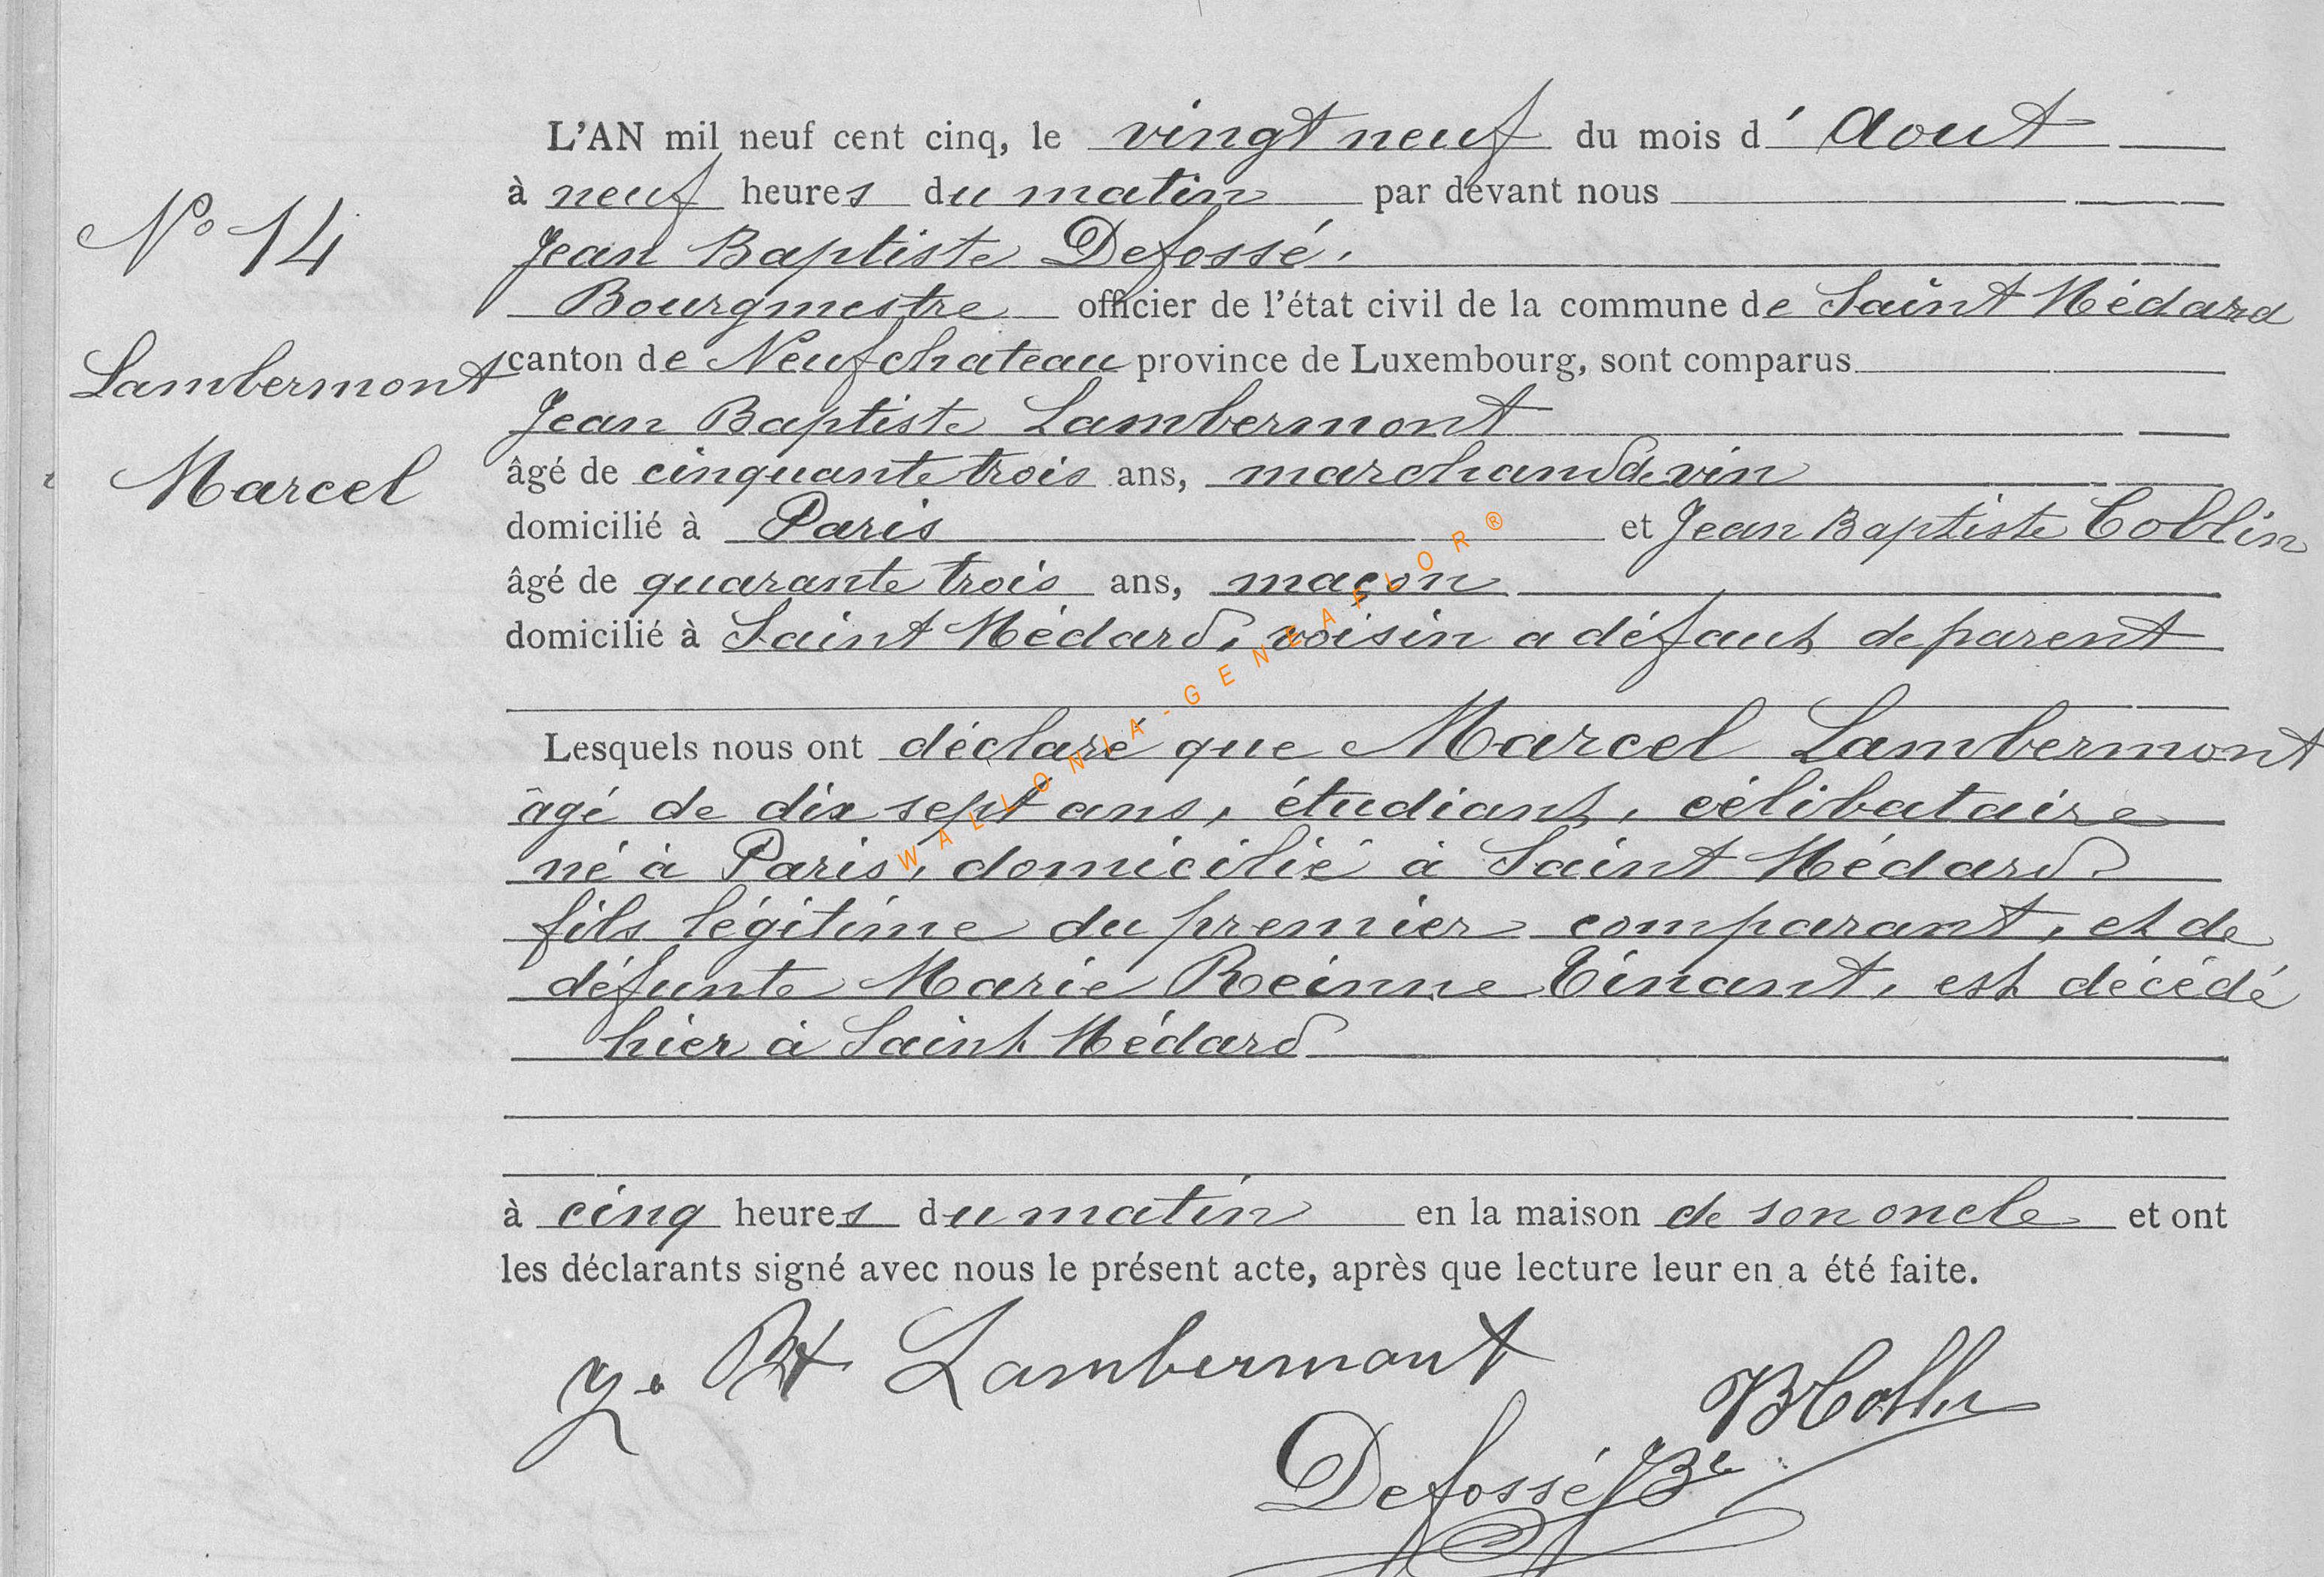 L'AN mil neuf cent cinq, le vingt neuf du mois d' Aout
à neuf heures du matin par devant nous
N° 14
Jean Baptiste Defossé.
Bourgmestre officier de l'état civil de la commune de Saint Médard
Lambermont
canton de Neufchateau province de Luxembourg, sont comparus
Jean Baptiste Lambermont
Marcel
âgé de cinquante trois ans, marchand de vin
domicilié à Paris et Jean Baptiste Collin
âgé de quarante trois ans, maçon
domicilié à Saint Médard, voisin a défaut de parent
WALLONIA-GENEAFLOR®
Lesquels nous ont déclaré que Marcel Lambermont
âgé de dix sept ans, étudiant, célibataire
né à Paris, domicilié à Saint Médard
fils légitime du premier comparant, et de
défunte Marie Reinne Tinant, est décédé
hier à Saint Médard
à cinq heures du matin en la maison de son oncle et ont
les déclarants signé avec nous le présent acte, après que lecture leur en a été faite.
J. Bt Lambermont
JBCollin
Defossé JBte